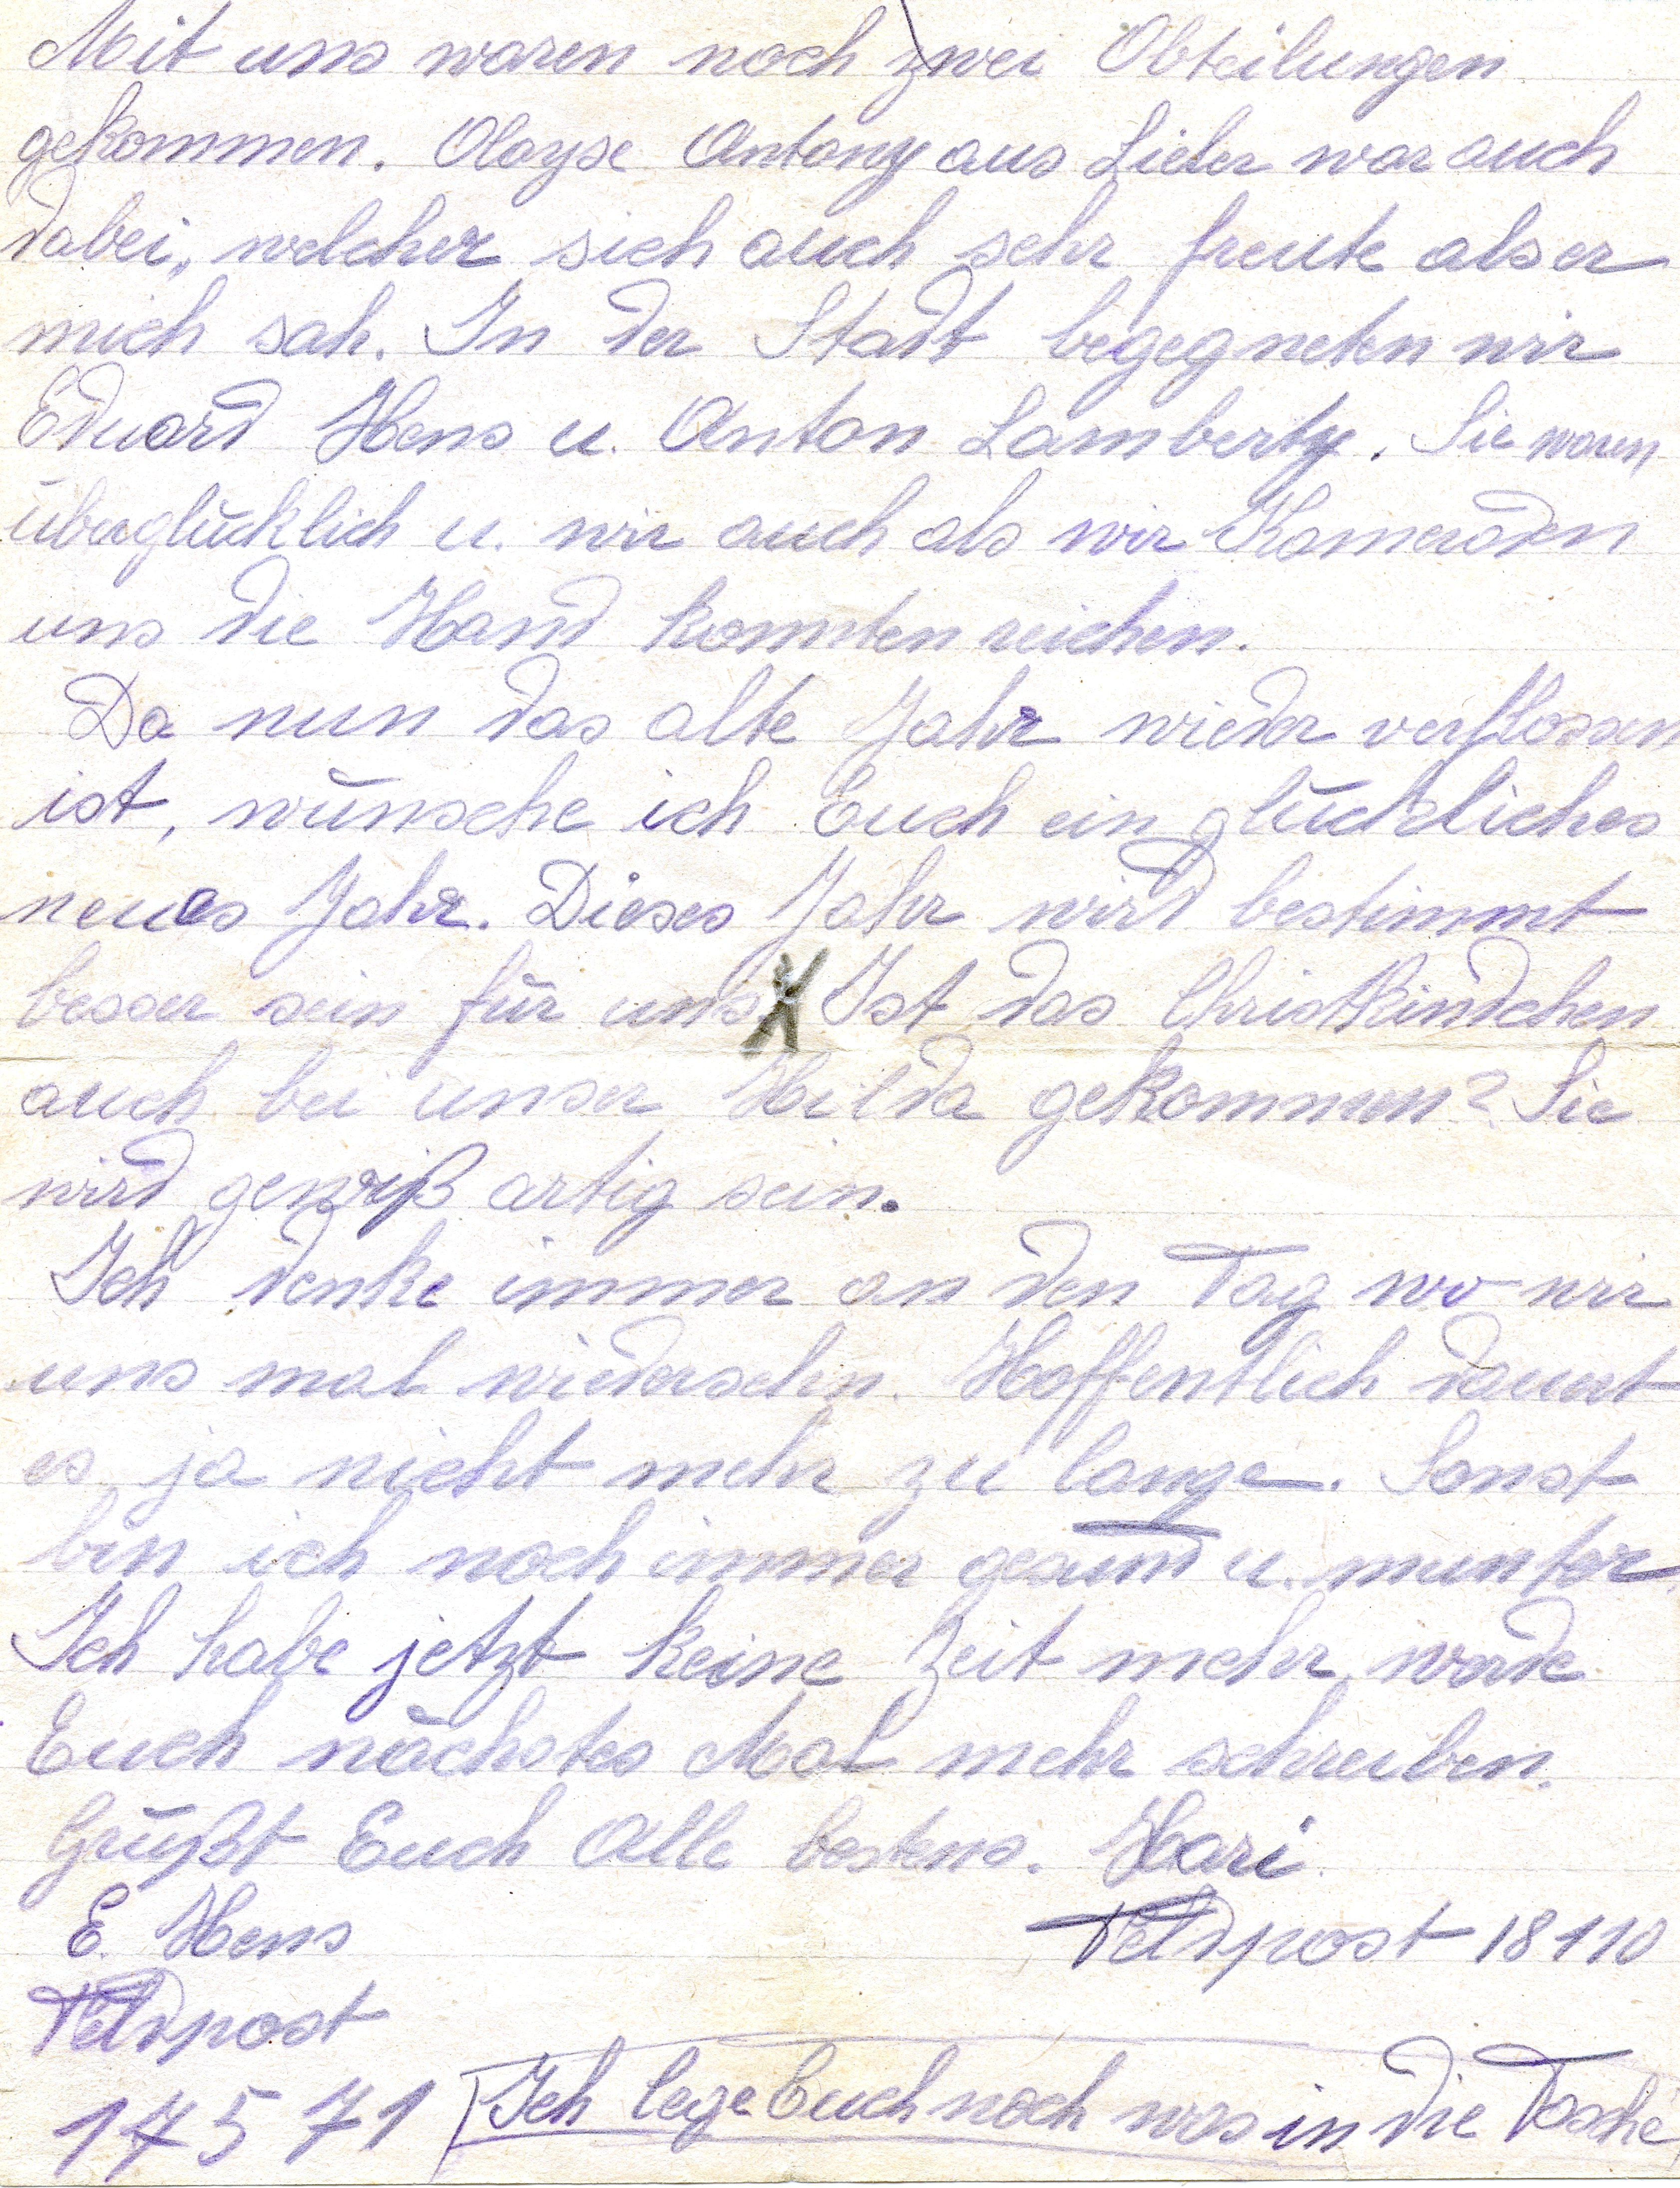 Mit uns waren noch zwei Abteilungen
gekommen. Aloyse Antony aus Lieler war auch
dabei, welcher sich auch sehr freute als er
mich sah. In der Stadt begegneten wir
Eduard Hens u. Anton Lamberty. Sie waren
überglücklich u. wir auch als wir Kameraden
uns die Hand konnten reichen.
Da nun das alte Jahr wieder verflossen
ist, wünsche ich Euch ein glückliches
neues Jahr. Dieses Jahr wird bestimmt
besser sein für uns. Ist das Christkindchen
auch bei unser Hilda gekommen? Sie
wird gewiß artig sein.
Ich denke immer an den Tag wo wir
uns mal wiedersehn. Hoffentlich dauert
es ja nicht mehr zu lange. Sonst
bin ich noch immer gesund u. munter
Ich habe jetzt keine Zeit mehr, werde
Euch nächstes Mal mehr schreiben.
Grüßt Euch Alle bestens. Hari.
E. Hens Feldpost 18110
Feldpost
17571 Ich lege Euch noch was in die Tasche